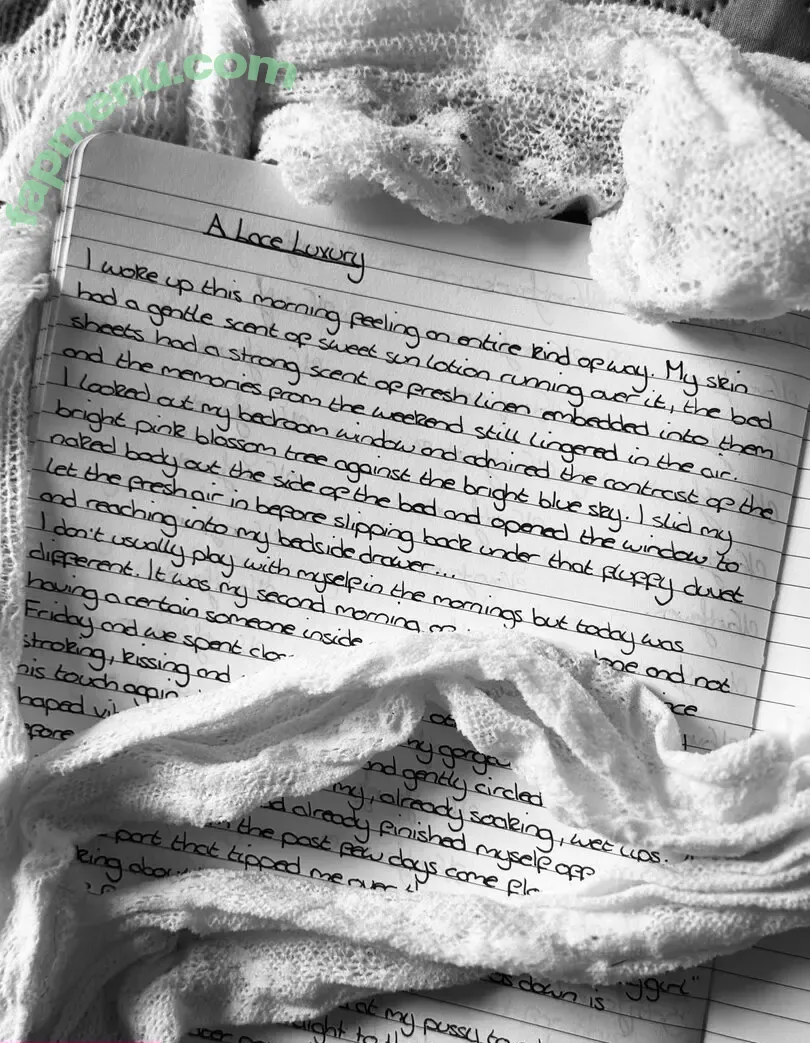 fapmenu.com
A Lace Luxury
I woke up this morning feeling an entire kind of way. My skin
had a gentle scent of sweet sun lotion running over it, the bed
sheets had a strong scent of fresh linen embedded into them
and the memories from the weekend still lingered in the air.
I looked out my bedroom window and admired the contrast of the
bright pink blossom tree against the bright blue sky. I slid my
naked body out the side of the bed and opened the window to
let the fresh air in before slipping back under that fluffy duvet
and reaching into my bedside drawer...
I don't usually play with myself in the mornings but today was
different. It was my second morning and not
having a certain someone inside
Friday and we spent
stroking, kissing and
his touch again
and gently circled
my, already soaking, wet lips.
already finished myself off
the past few days come
part that tipped me over
down is
my pussy